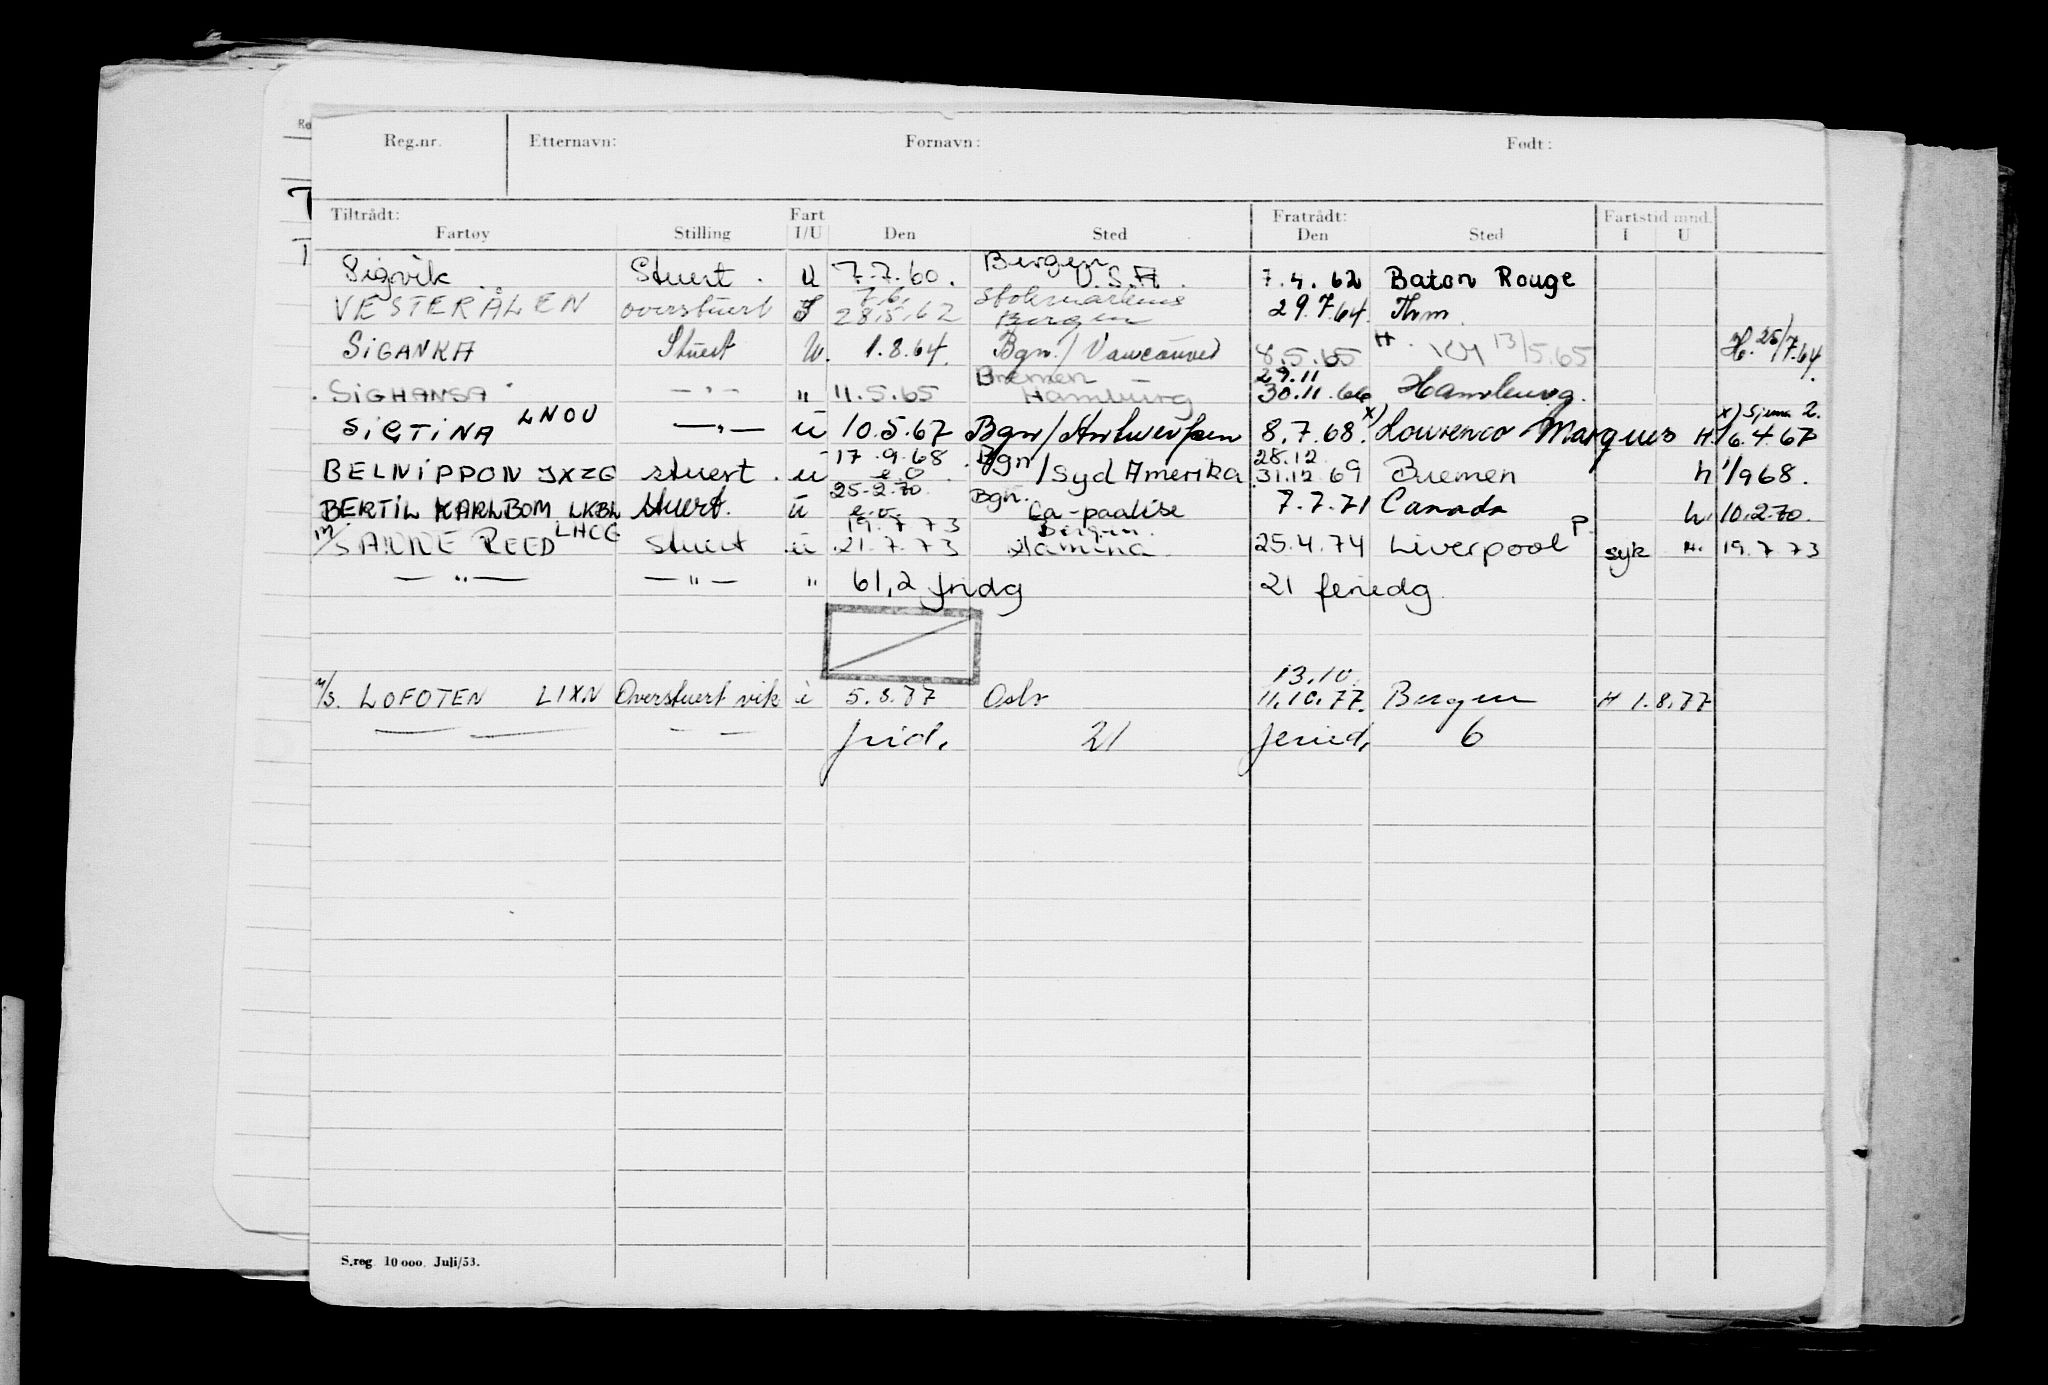 Reg.nr. Etternavn: Fornavn: Født:
Tiltrådt: Fart Fratrådt: Fartstid mnd.
Fartøy Stilling I/U Den Sted Den Sted I U
Sigvik Stuert. U 7.7.60. Bergen U.S.A. 7.4.62 Baton Rouge
VESTERÅLEN overstuert I 7.6. 28.5.62 Stokmarknes Bergen 29.7.64. Thm.
SIGANKA Stuert U. 1.8.64. Bgn./Vancouver 8.5.65 H. 13/5.65 H. 25/7.64.
SIGHANSA — " — " 11.5.65 Bremen Hamburg 29.11 30.11.66 Hamburg.
SIGTINA LNOU — " — ü 10.5.67 Bgn/Antwerpen 8.7.68. x) Lourenco Marques H. 16.4.67 x) Sjema 2.
BELNIPPON JXZG stuert. ü 17.9.68 e.o. Bgn/Syd Amerika 28.12 31.12.69 Bremen h 1/968.
BERTIL KARLBOM LKBL stuert. ü 25.2.70 e.o. Bgn. La-paalise 7.7.71 Canada h. 10.2.70.
m/S ANNE REED LHCG stuert ü 19.7.73 21.7.73 Bergen. Hamina. 25.4.74 Liverpool P syk H. 19.7.73
— " — — " — " 61,2 fridg 21 feriedg.
m/s. LOFOTEN LIXN Overstuert vik i 5.8.77 Oslo 13.10. 11.10.77. Bergen H 1.8.77
— — — — frid. 21 feried. 6
S.reg. 10 000. Juli/53.